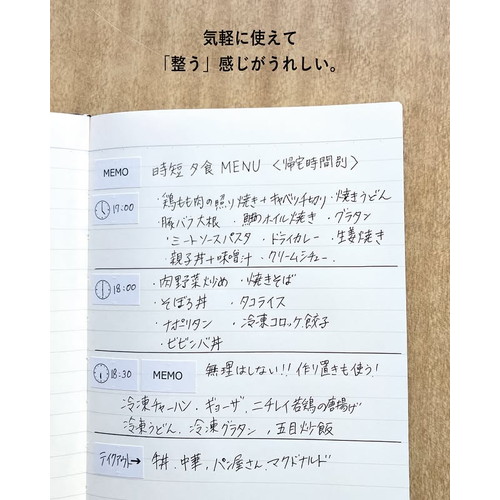 気軽に使えて
「整う」感じがうれしい。
MEMO 時短夕食 MENU 〈帰宅時間別〉
17:00 ・鶏もも肉の照り焼き+キャベツ千切り ・焼きうどん
・豚バラ大根 ・鯛ホイル焼き ・グラタン
・ミートソースパスタ ・ドライカレー ・生姜焼き
・親子丼+味噌汁 ・クリームシチュー
18:00 ・肉野菜炒め ・焼きそば
・そぼろ丼 ・タコライス
・ナポリタン ・冷凍コロッケ,餃子
・ビビンバ丼
18:30 MEMO 無理はしない!! 作り置きも使う!
冷凍チャーハン、ギョーザ、ニチレイ若鶏の唐揚げ
冷凍うどん、冷凍グラタン、五目炒飯
テイクアウト→ 牛丼、中華、パン屋さん、マクドナルド